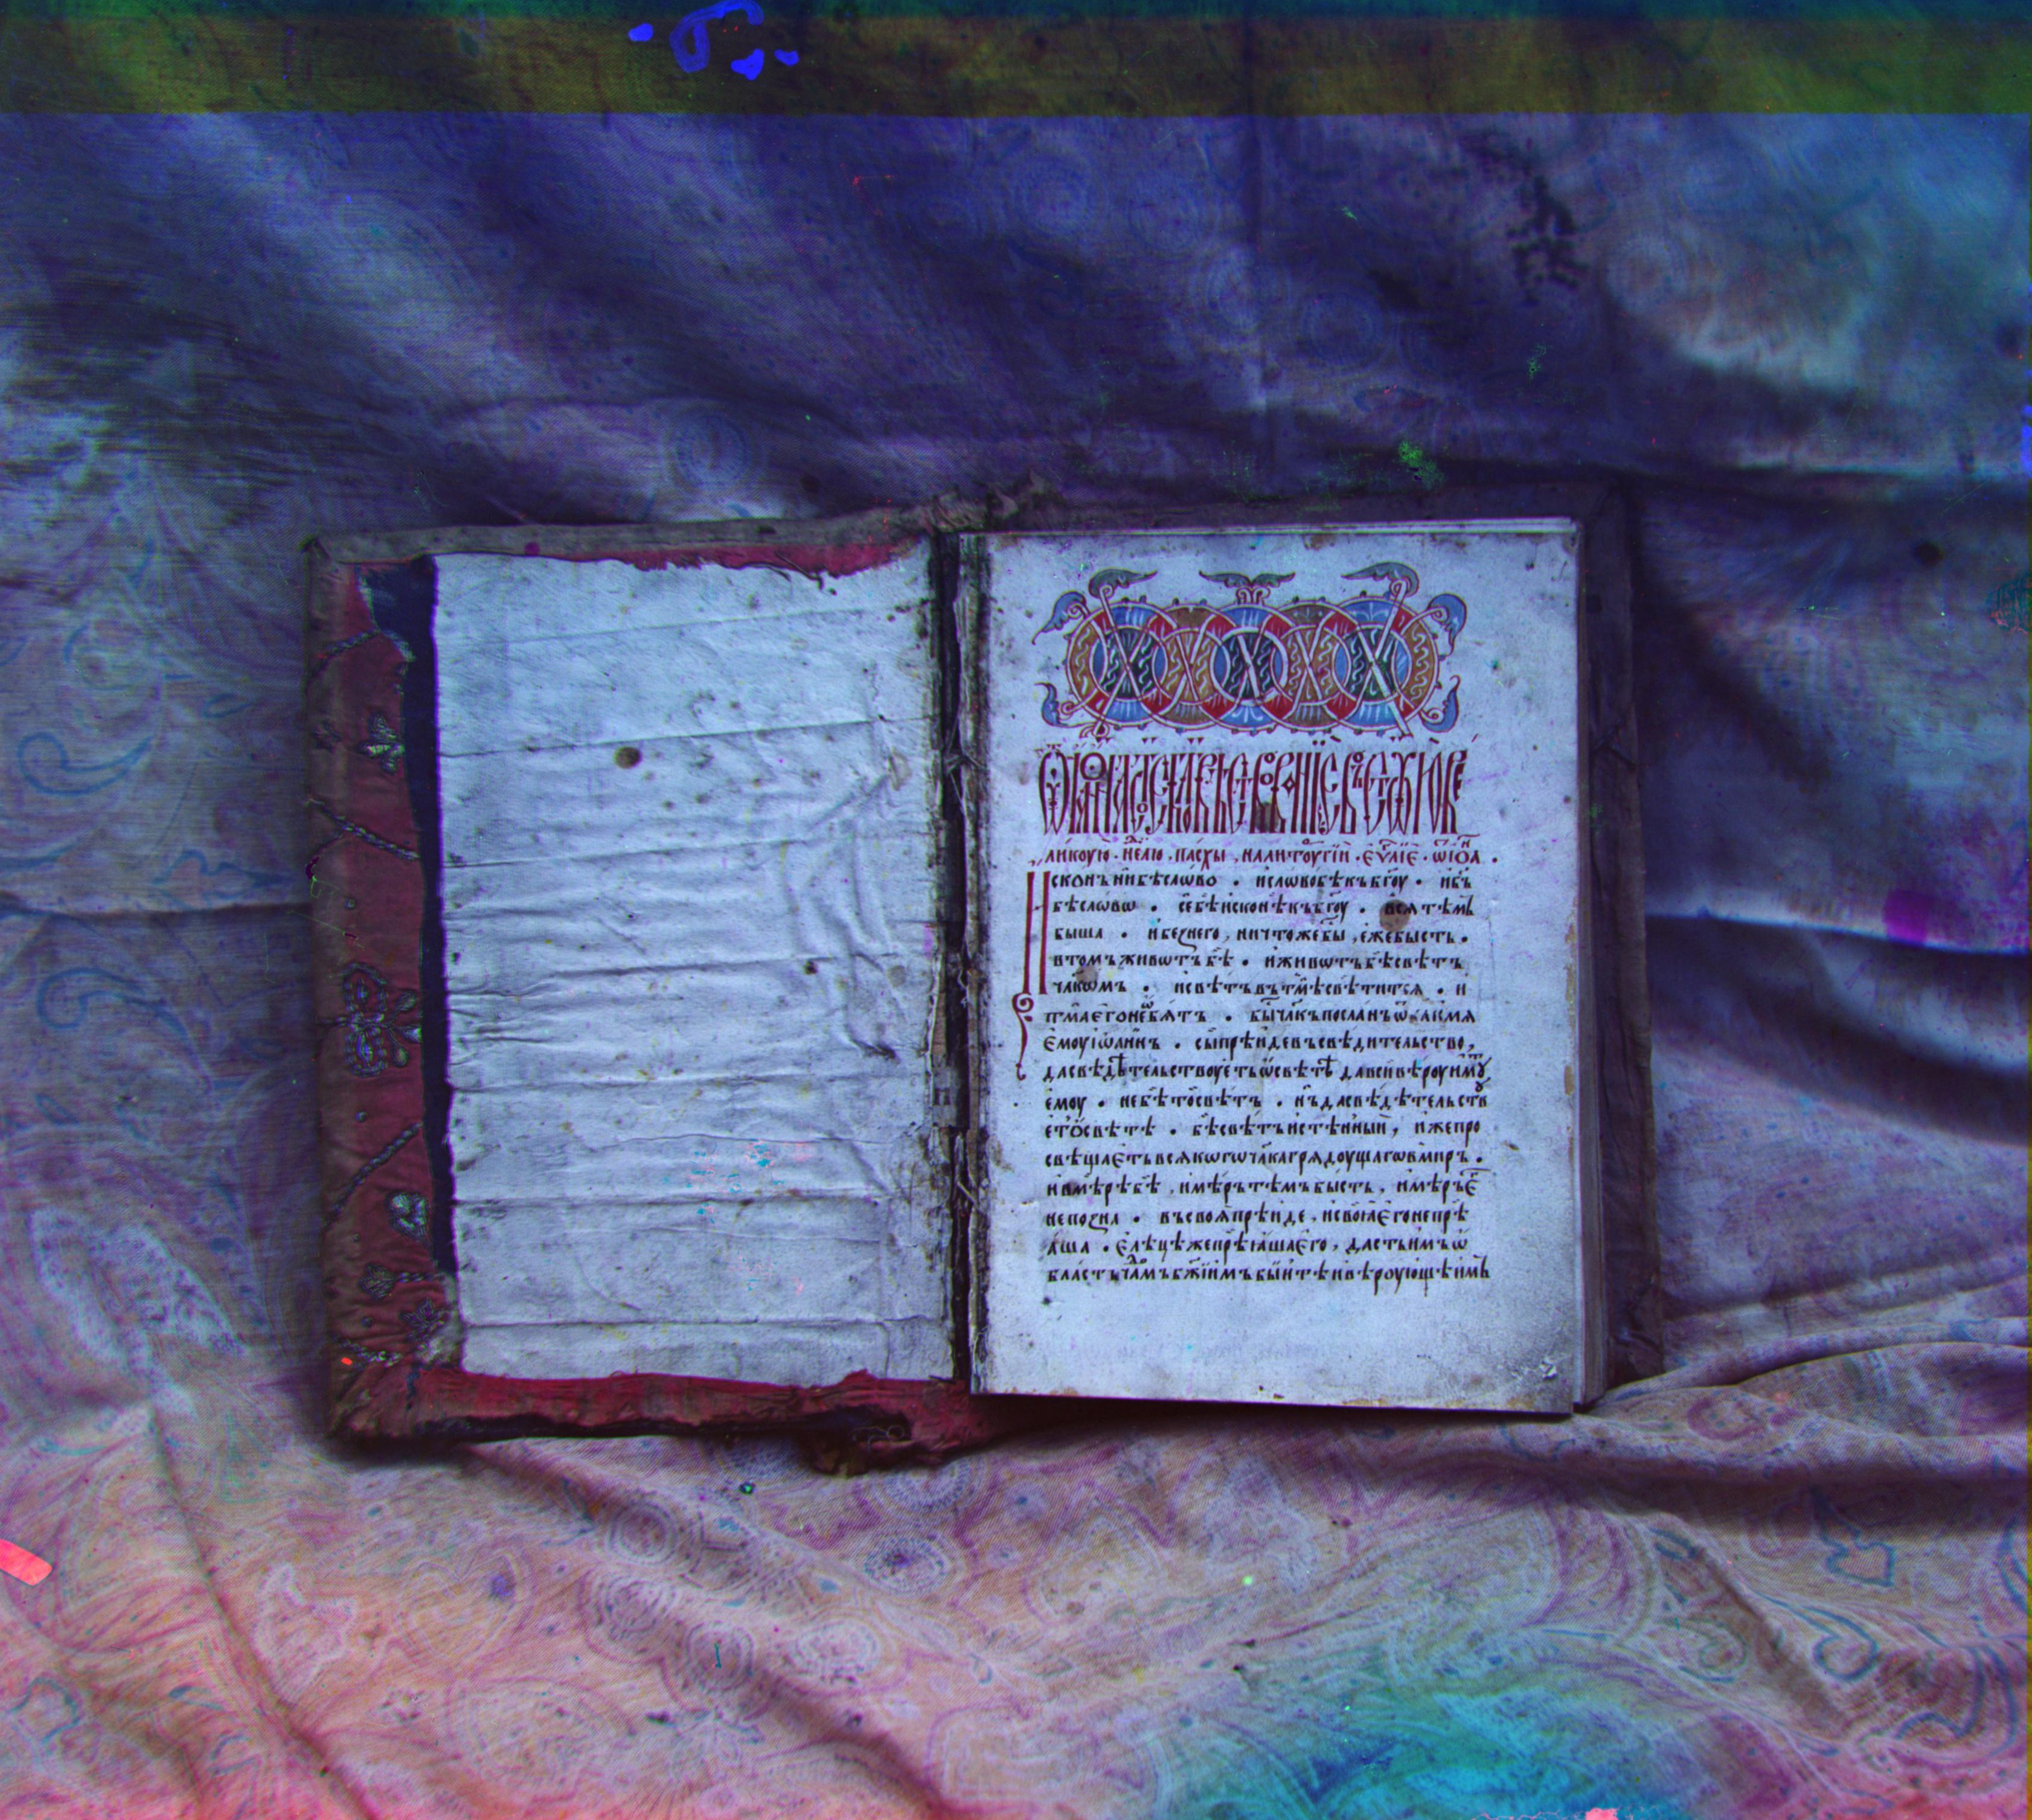 ликоую · н҃елю , па́схы , налитоургїи · єѵ҃лїє · ѿ іѡа .
Искони бѣ слово · и слово бѣ къ бг҃оу · и бг҃ъ
бѣ слово · се бѣ искони къ бг҃оу · вся тѣмь
быша · и без него , ничтоже бы , еже бысть .
в томъ живѡтъ бѣ · и живѡтъ бѣ свѣтъ
чл҃кѡмъ · и свѣтъ въ тмѣ свѣтится · и
тма єго не ѡбятъ · бы чл҃къ посланъ ѿ ба҃ имя
ємоу іѡаннъ · сы прѣиде въ свѣдительство ,
да свѣдѣтельствоуєть ѡ свѣтѣ да вси вѣроу имоу҆т
ємоу · не бѣ то свѣтъ · нъ да свѣдѣтельств
єт ѡ свѣтѣ · бѣ свѣтъ истѣнный , иже про
свѣщаєть всякого чл҃ка грядоущаго в миръ .
и в мѣрѣ бѣ , и мѣръ тѣмъ бысть , и мѣръ є҆г
не позна · въ своя прѣиде , и свои єго не прѣ
аша · єлѣцѣ же прѣяша єго , дасть имъ ѡ
бласть чадомъ бж҃їимъ быти вѣроующѣимь